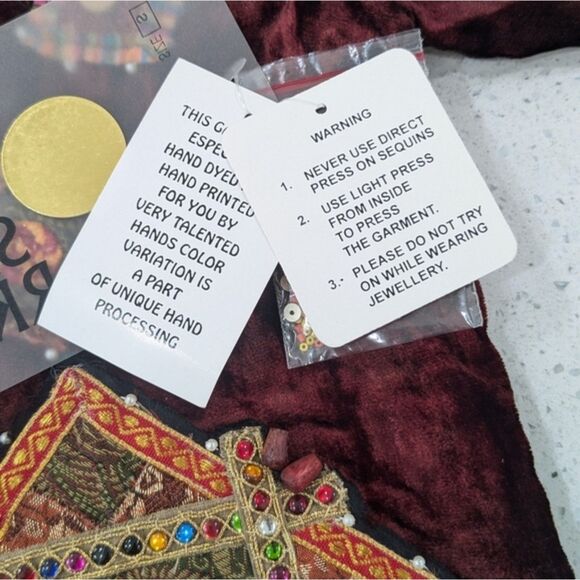 SIZE S
THIS
HAND DYED
HAND PRINTED
FOR YOU BY
VERY TALENTED
HANDS COLOR
VARIATION IS
A PART
OF UNIQUE HAND
PROCESSING
WARNING
1. NEVER USE DIRECT
PRESS ON SEQUINS
2. USE LIGHT PRESS
FROM INSIDE
TO PRESS
THE GARMENT.
3.- PLEASE DO NOT TRY
ON WHILE WEARING
JEWELLERY.